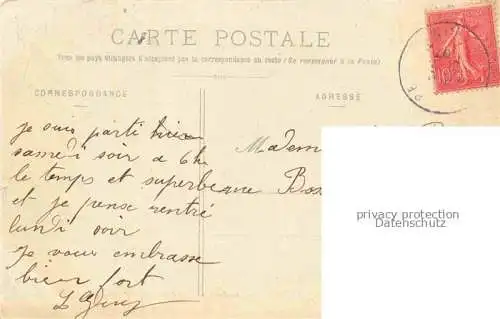 CARTE POSTALE
Tous les pays étrangers n'acceptent pas la correspondance au recto (Se renseigner à la Poste)
CORRESPONDANCE
ADRESSE
je suis parti hier
samedi soir a 6h
le temps et superbe que
et je pense rentré
lundi soir
je vous embrasse
bien fort
Madem
Bos
privacy protection
Datenschutz